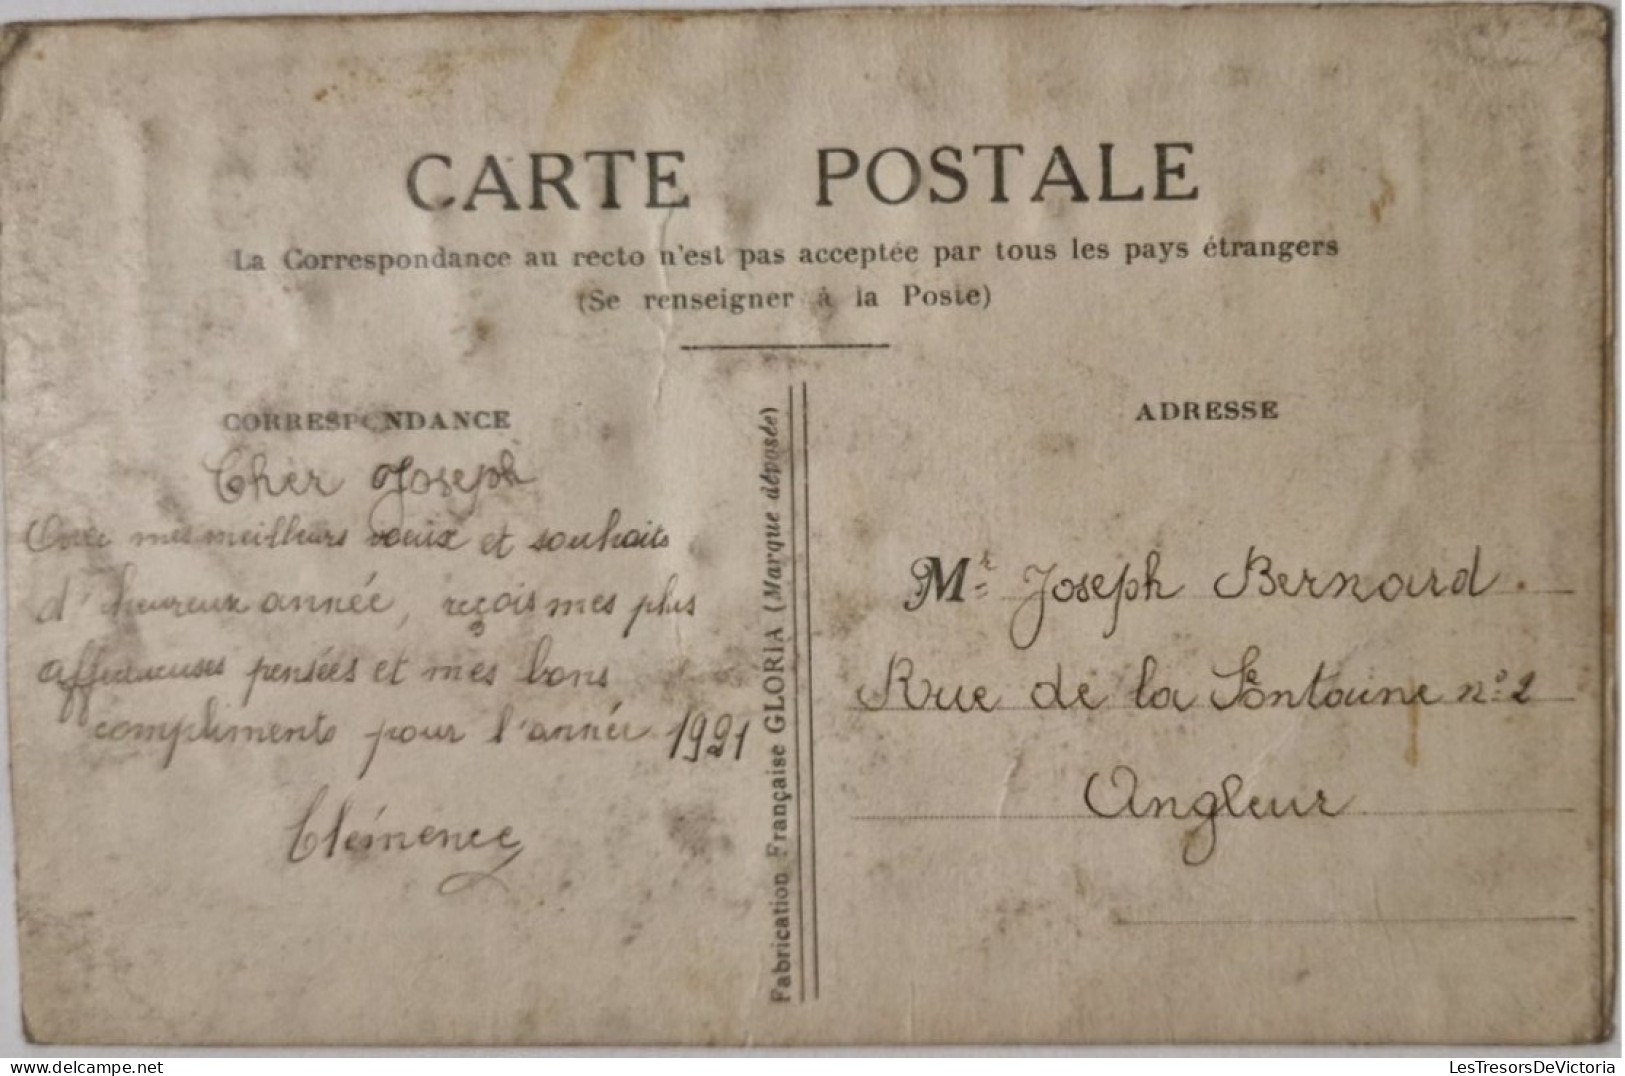 CARTE POSTALE
La Correspondance au recto n'est pas acceptée par tous les pays étrangers
(Se renseigner à la Poste)
CORRESPONDANCE
Cher Joseph
Avec mes meilleurs voeux et souhaits
d'heureux année, reçois mes plus
affectueuses pensées et mes bons
compliments pour l'année 1921
Clémence
Fabrication Française GLORIA (Marque déposée)
ADRESSE
Mr Joseph Bernard.
Rue de la Fontaine n° 2
Angleur
LesTresorsDeVictoria